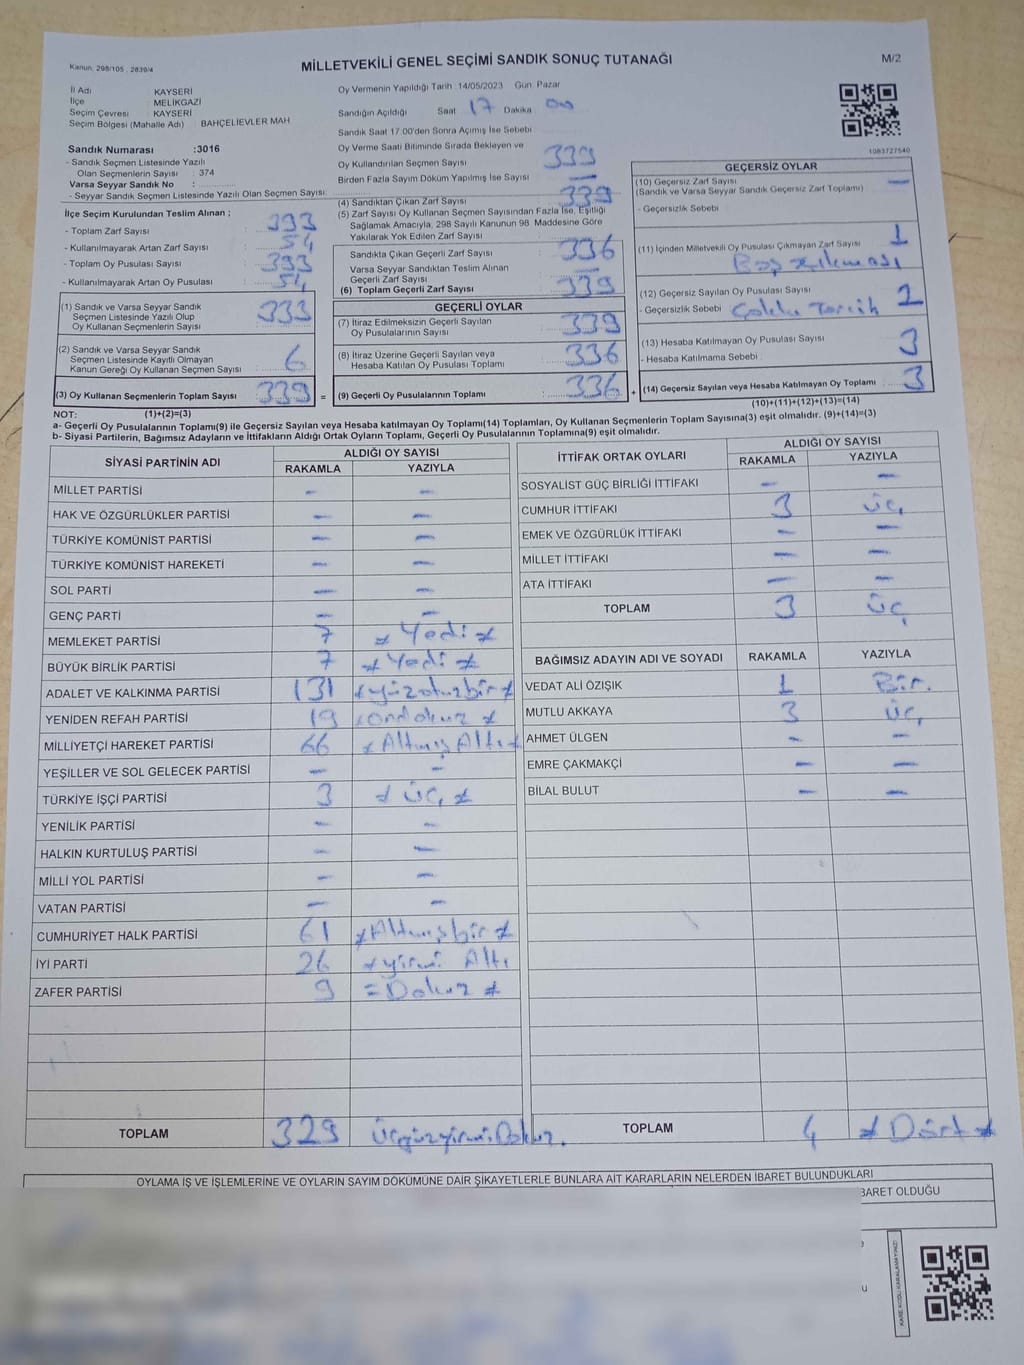 Kanun: 298/105, 2839/4
MİLLETVEKİLİ GENEL SEÇİMİ SANDIK SONUÇ TUTANAĞI
M/2
İl Adı KAYSERİ
İlçe MELİKGAZİ
Seçim Çevresi KAYSERİ
Seçim Bölgesi (Mahalle Adı) BAHÇELİEVLER MAH
Sandık Numarası :3016
- Sandık Seçmen Listesinde Yazılı
Olan Seçmenlerin Sayısı : 374
Varsa Seyyar Sandık No :
- Seyyar Sandık Seçmen Listesinde Yazılı Olan Seçmen Sayısı:
İlçe Seçim Kurulundan Teslim Alınan ;
- Toplam Zarf Sayısı : 393
- Kullanılmayarak Artan Zarf Sayısı : 54
- Toplam Oy Pusulası Sayısı : 393
- Kullanılmayarak Artan Oy Pusulası : 54
(1) Sandık ve Varsa Seyyar Sandık
Seçmen Listesinde Yazılı Olup
Oy Kullanan Seçmenlerin Sayısı : 333
(2) Sandık ve Varsa Seyyar Sandık
Seçmen Listesinde Kayıtlı Olmayan
Kanun Gereği Oy Kullanan Seçmen Sayısı : 6
(3) Oy Kullanan Seçmenlerin Toplam Sayısı : 339 =
Oy Vermenin Yapıldığı Tarih :14/05/2023 Gün: Pazar
Sandığın Açıldığı Saat 17 Dakika 00
Sandık Saat 17.00'den Sonra Açımış İse Sebebi
Oy Verme Saati Bitiminde Sırada Bekleyen ve
Oy Kullandırılan Seçmen Sayısı 339
Birden Fazla Sayım Döküm Yapılmış İse Sayısı —
(4) Sandıktan Çıkan Zarf Sayısı 339
(5) Zarf Sayısı Oy Kullanan Seçmen Sayısından Fazla İse, Eşitliği
Sağlamak Amacıyla, 298 Sayılı Kanunun 98. Maddesine Göre
Yakılarak Yok Edilen Zarf Sayısı :
Sandıkta Çıkan Geçerli Zarf Sayısı : 336
Varsa Seyyar Sandıktan Teslim Alınan
Geçerli Zarf Sayısı : —
(6) Toplam Geçerli Zarf Sayısı : 339
GEÇERLİ OYLAR
(7) İtiraz Edilmeksizin Geçerli Sayılan
Oy Pusulalarının Sayısı : 339
(8) İtiraz Üzerine Geçerli Sayılan veya
Hesaba Katılan Oy Pusulası Toplamı : 336
(9) Geçerli Oy Pusulalarının Toplamı : 336 +
1083727540
GEÇERSİZ OYLAR
(10) Geçersiz Zarf Sayısı —
(Sandık ve Varsa Seyyar Sandık Geçersiz Zarf Toplamı)
- Geçersizlik Sebebi :
(11) İçinden Milletvekili Oy Pusulası Çıkmayan Zarf Sayısı 1
(12) Geçersiz Sayılan Oy Pusulası Sayısı 2
- Geçersizlik Sebebi
(13) Hesaba Katılmayan Oy Pusulası Sayısı : 3
- Hesaba Katılmama Sebebi :
(14) Geçersiz Sayılan veya Hesaba Katılmayan Oy Toplamı : 3
(10)+(11)+(12)+(13)=(14)
NOT: (1)+(2)=(3)
a- Geçerli Oy Pusulalarının Toplamı(9) ile Geçersiz Sayılan veya Hesaba katılmayan Oy Toplamı(14) Toplamları, Oy Kullanan Seçmenlerin Toplam Sayısına(3) eşit olmalıdır. (9)+(14)=(3)
b- Siyasi Partilerin, Bağımsız Adayların ve İttifakların Aldığı Ortak Oyların Toplamı, Geçerli Oy Pusulalarının Toplamına(9) eşit olmalıdır.
SİYASİ PARTİNİN ADI ALDIĞI OY SAYISI
RAKAMLA YAZIYLA
MİLLET PARTİSİ — —
HAK VE ÖZGÜRLÜKLER PARTİSİ — —
TÜRKİYE KOMÜNİST PARTİSİ — —
TÜRKİYE KOMÜNİST HAREKETİ — —
SOL PARTİ — —
GENÇ PARTİ — —
MEMLEKET PARTİSİ 7 Yedi
BÜYÜK BİRLİK PARTİSİ 7 Yedi
ADALET VE KALKINMA PARTİSİ 131 yüzotuzbir
YENİDEN REFAH PARTİSİ 19 ondokuz
MİLLİYETÇİ HAREKET PARTİSİ 66 Altmış Altı
YEŞİLLER VE SOL GELECEK PARTİSİ — —
TÜRKİYE İŞÇİ PARTİSİ 3 üç
YENİLİK PARTİSİ — —
HALKIN KURTULUŞ PARTİSİ — —
MİLLİ YOL PARTİSİ — —
VATAN PARTİSİ — —
CUMHURİYET HALK PARTİSİ 61 Altmışbir
İYİ PARTİ 26 yirmi Altı
ZAFER PARTİSİ 9 = Dokuz
TOPLAM 329 üçyüzyirmi Dokuz.
İTTİFAK ORTAK OYLARI ALDIĞI OY SAYISI
RAKAMLA YAZIYLA
SOSYALİST GÜÇ BİRLİĞİ İTTİFAKI — —
CUMHUR İTTİFAKI 3 üç
EMEK VE ÖZGÜRLÜK İTTİFAKI — —
MİLLET İTTİFAKI — —
ATA İTTİFAKI — —
TOPLAM 3 üç
BAĞIMSIZ ADAYIN ADI VE SOYADI RAKAMLA YAZIYLA
VEDAT ALİ ÖZIŞIK 1 Bir.
MUTLU AKKAYA 3 üç
AHMET ÜLGEN — —
EMRE ÇAKMAKÇİ — —
BİLAL BULUT — —
TOPLAM 4 Dört
OYLAMA İŞ VE İŞLEMLERİNE VE OYLARIN SAYIM DÖKÜMÜNE DAİR ŞİKAYETLERLE BUNLARA AİT KARARLARIN NELERDEN İBARET BULUNDUKLARI
BARET OLDUĞU
KARE KODU KARALAMAYINIZ!